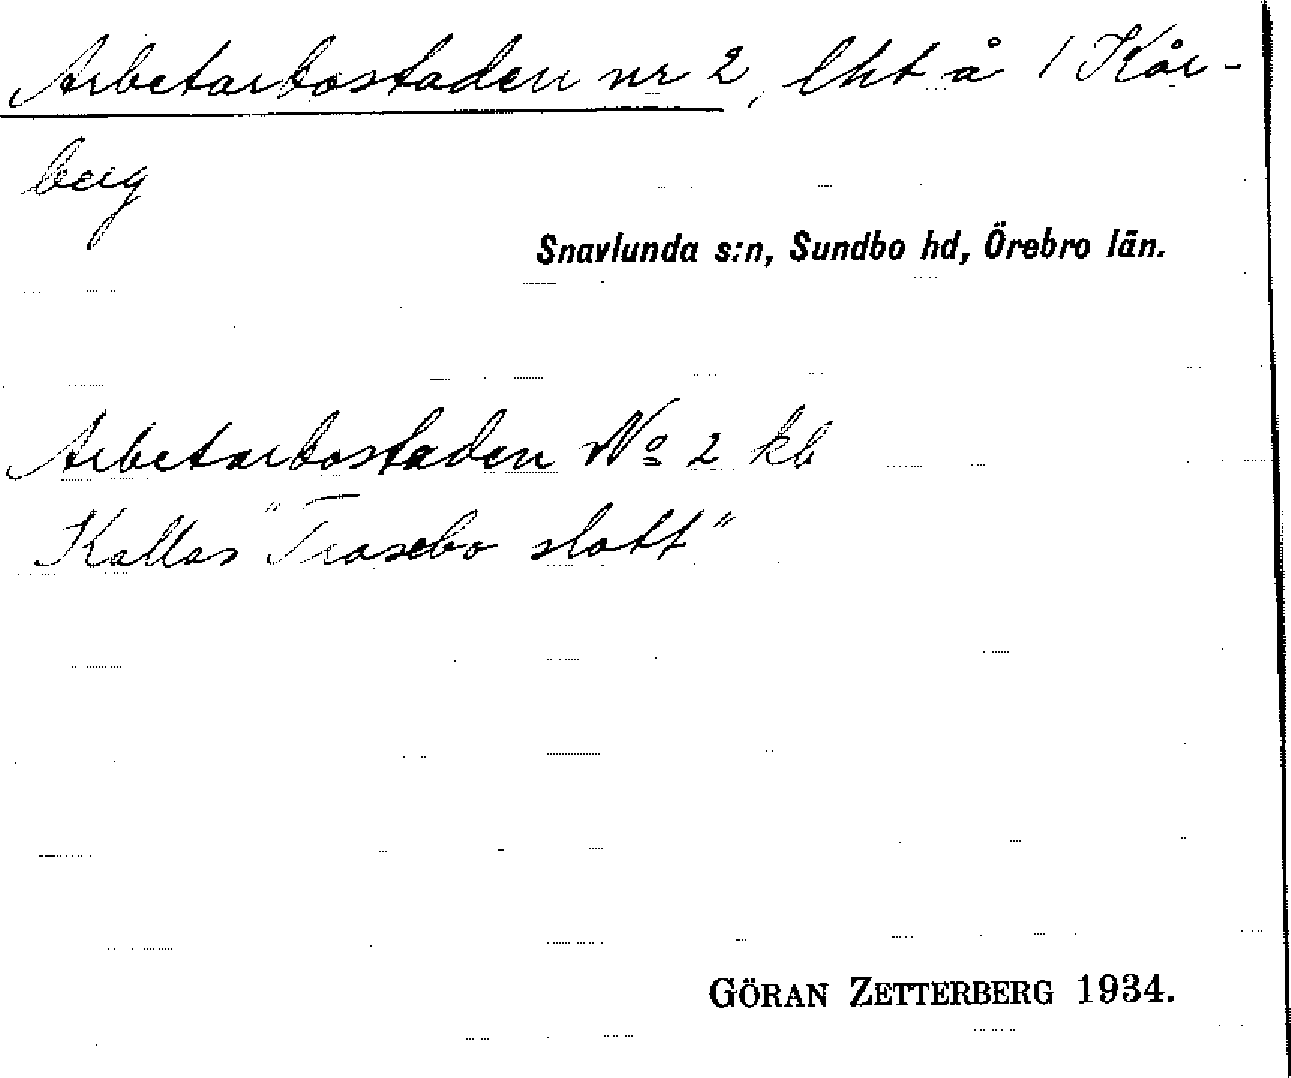 Arbetarbostaden nr 2, lht å 1 Kår-
berg
Snavlunda s:n, Sundbo hd, Örebro län.
Arbetarbostaden No 2 kb
Kallas "Trasebo slott"
GÖRAN ZETTERBERG 1934.